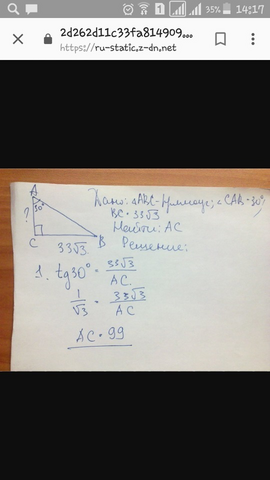 35% 14:17
2d262d11c33fa814909...
https://ru-static.z-dn.net
A
30°
?
C
33√3
B
Дано: △ABC-прямоуг; ∠CAB=30°
BC=33√3
Найти: AC
Решение:
1. tg30° = 33√3
AC
1
√3
= 33√3
AC
AC=99